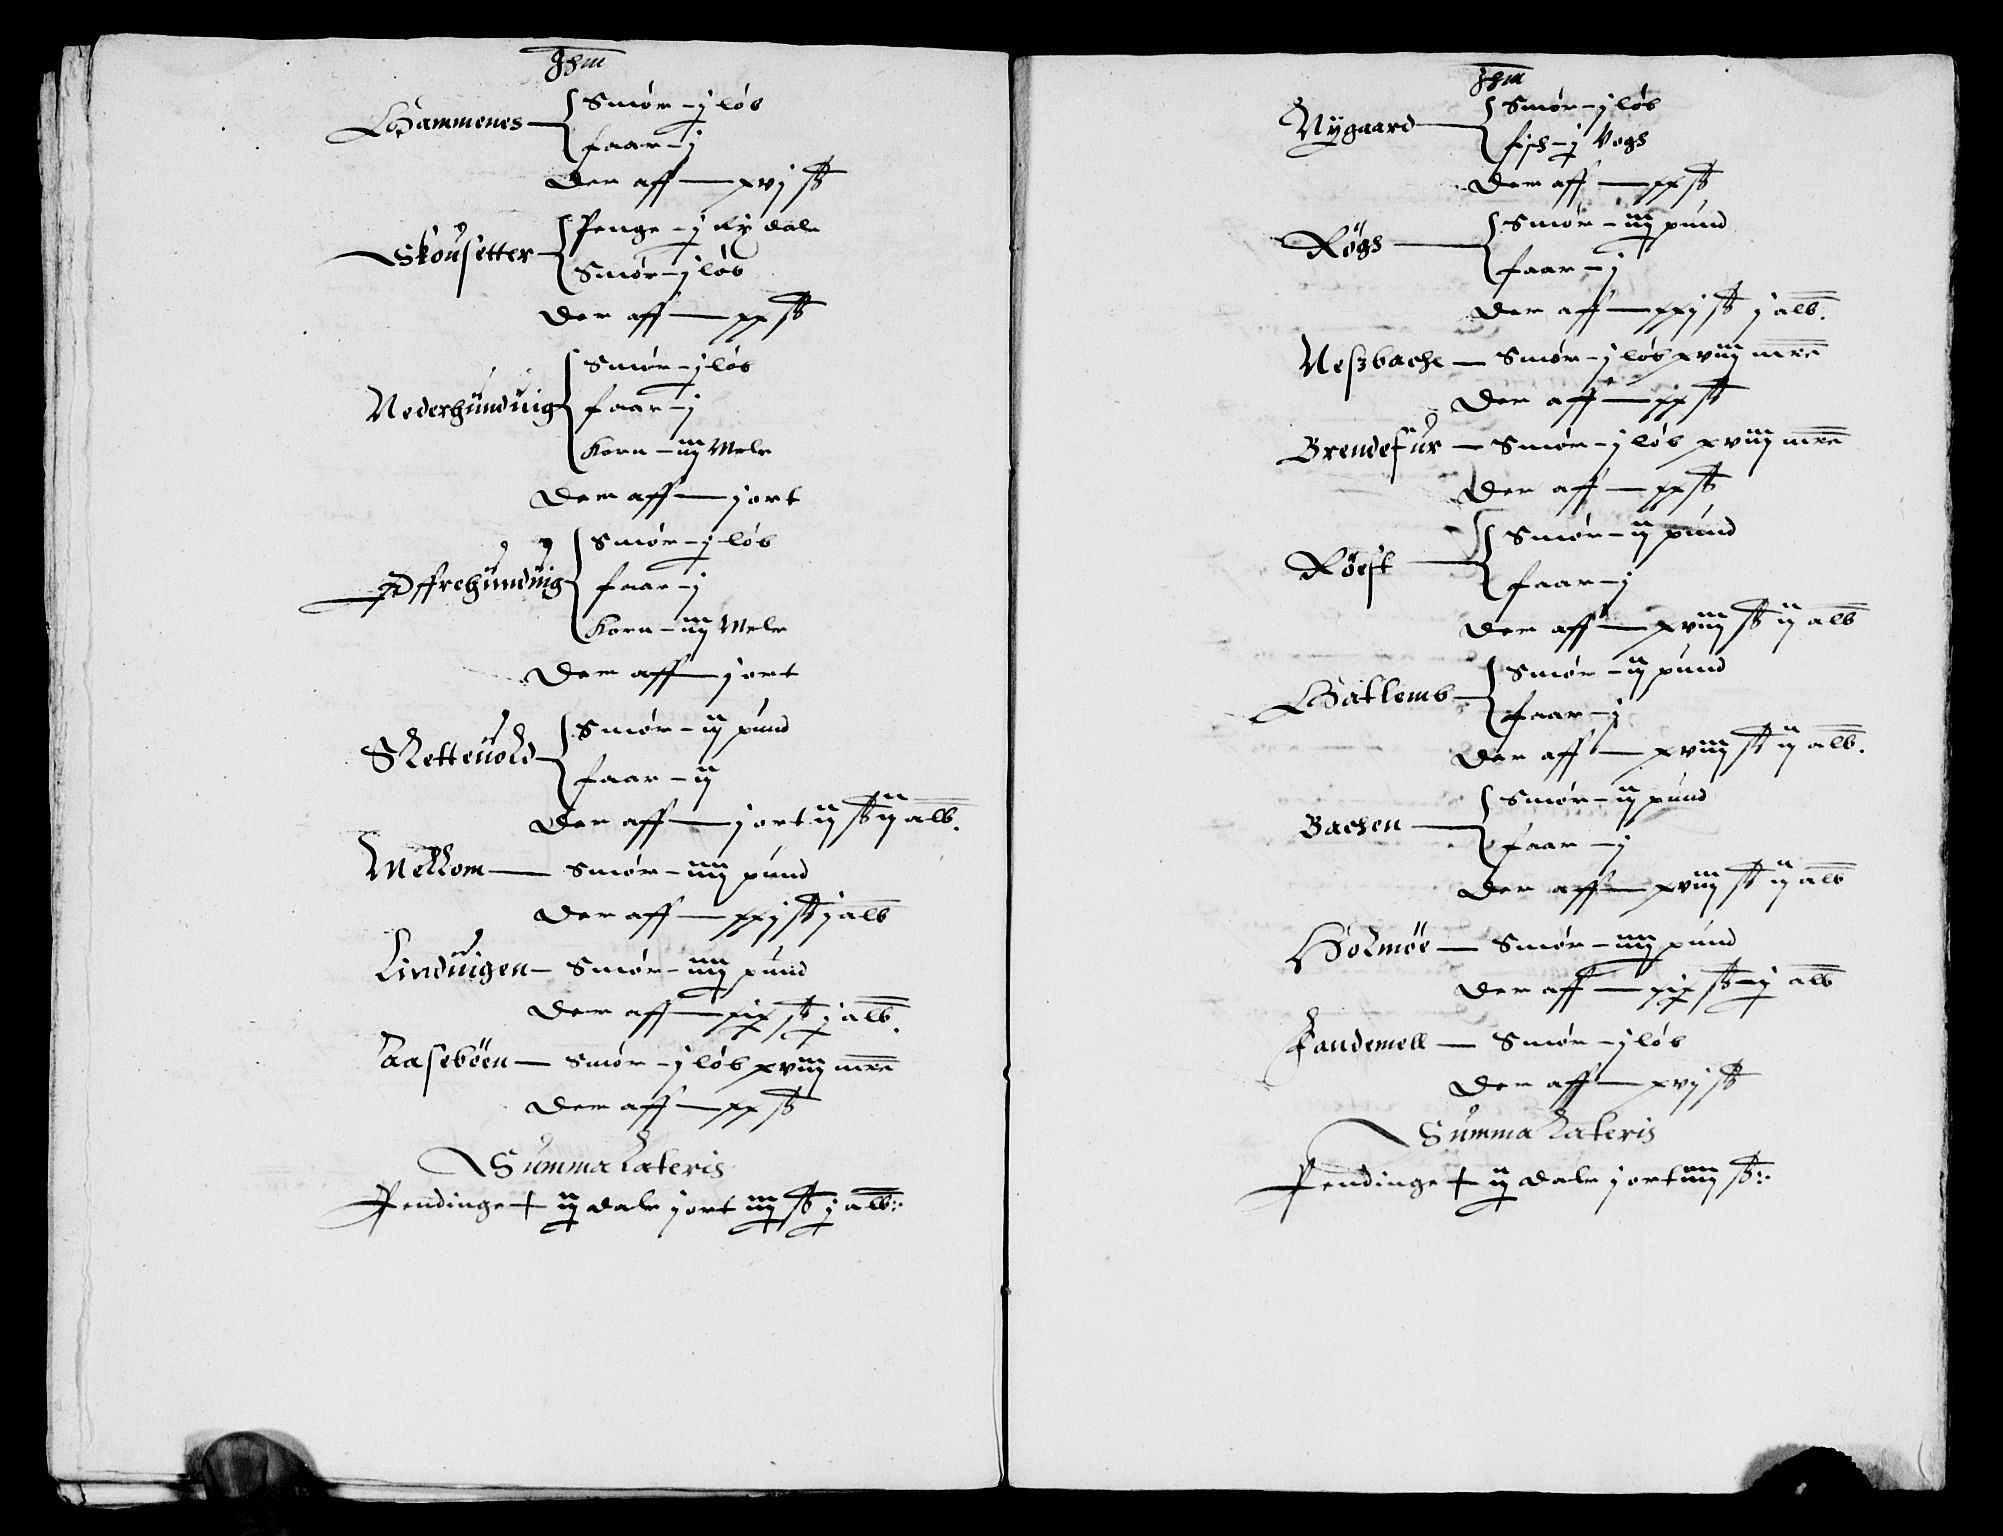 Jhm
Hammenes — Smør — j løb
faar — j
Der aff — xvj ſß
Skousetter — Penge — j Rx dalr
Smør — j løb
Der aff — xx ſß
Nederhunduig — Smør — j løb
faar — j
Korn — iij Melr
Der aff — j ort
Offrehunduig — Smør — j løb
faar — j
Korn — iij Melr
Der aff — j ort
Sletteuold — Smør — ij pund
faar — ij
Der aff — j ort ij ſß ij alb.
Mellom — Smør — iiij pund
Der aff — xxj ſß j alb
Linduigen — Smør — iiij pund
Der aff — xix ſß j alb.
Aasebøen — Smør — j løb xviij mrc
Der aff — xx ſß
Summa Lateris
Pendinge + ij dalr j ort iiij ſß j alb:
Jhm
Nygaard — Smør — j løb
fisch — j Vogh
Der aff — xx ſß
Røgh — Smør — iij pund
faar — j
Der aff — xxj ſß j alb.
Neszbache — Smør — j løb xviij mrc
Der aff — xx ſß
Brendefur — Smør — j løb xviij mrc
Der aff — xx ſß
Røest — Smør — ij pund
faar — j
Der aff — xviij ſß ij alb
Hatlemb — Smør — ij pund
faar — j
Der aff — xviij ſß ij alb.
Bachen — Smør — ij pund
faar — j
Der aff — xviij ſß ij alb
Holmøe — Smør — iiij pund
Der aff — xix ſß — j alb
Sandemell — Smør — j løb
Der aff — xvj ſß
Summa Lateris
Pendinge + ij dalr j ort iiij ſß: